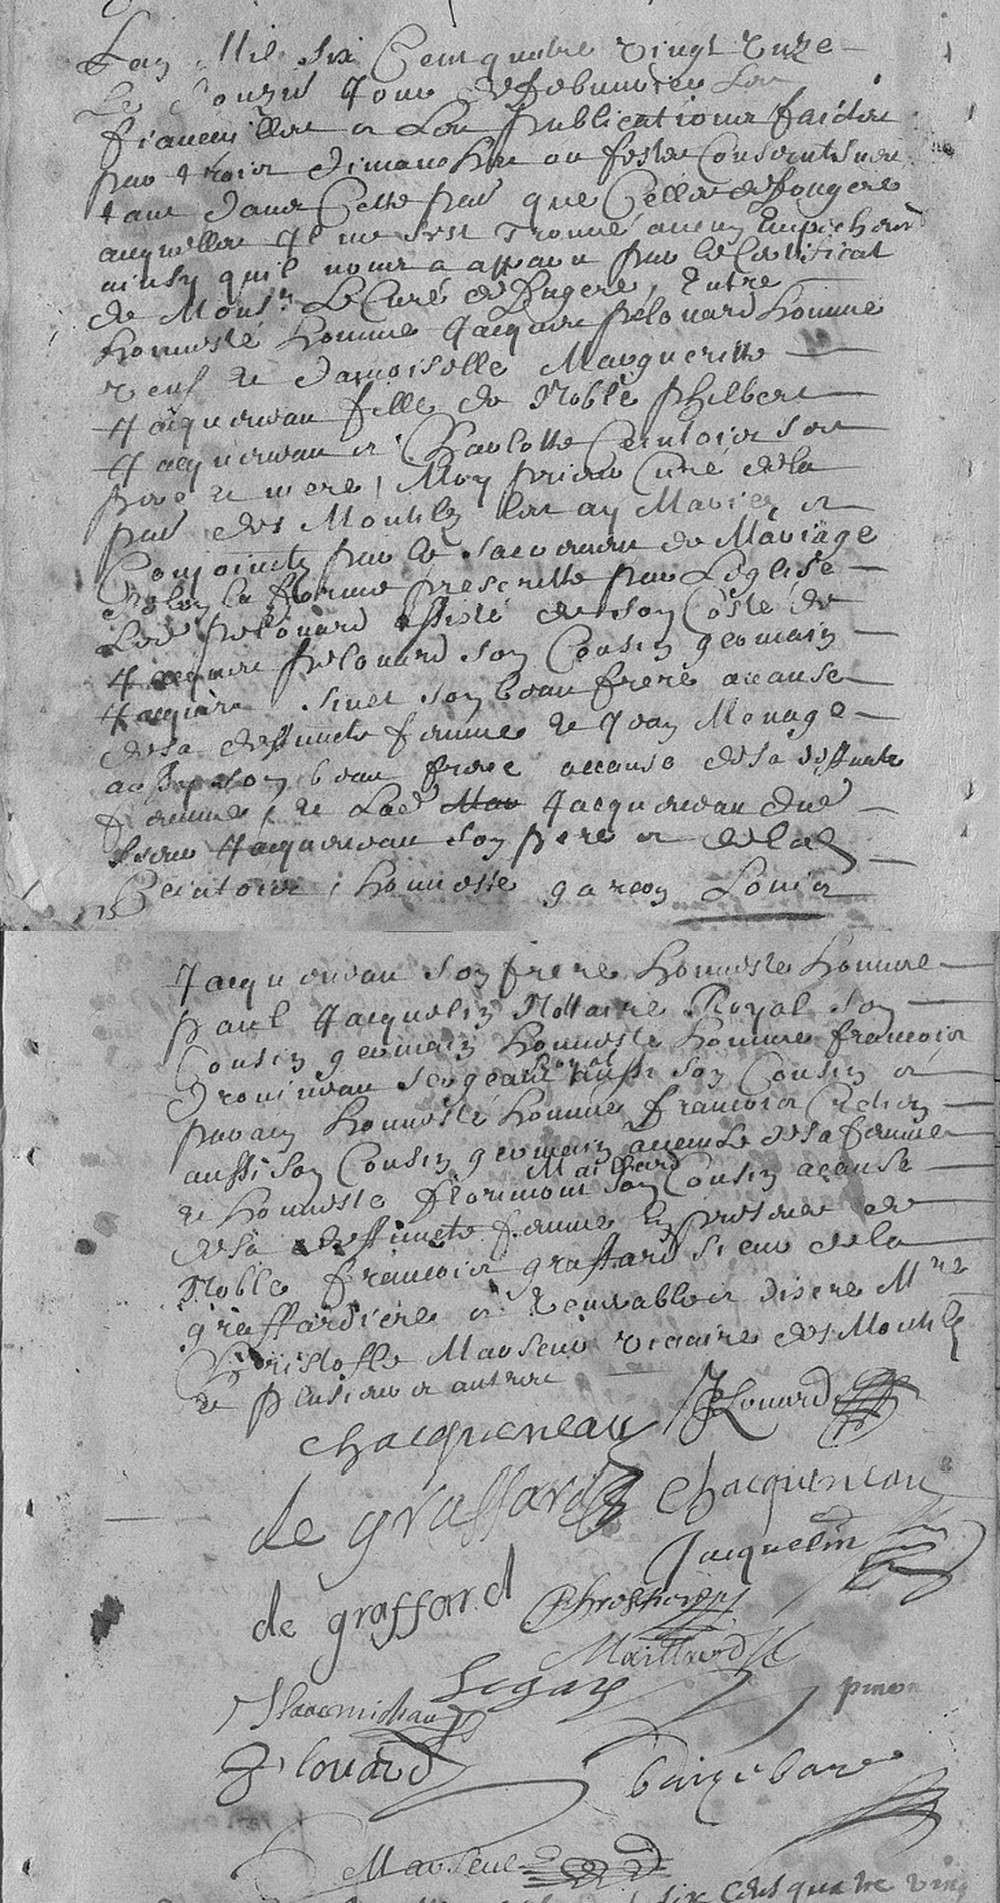 Lan Mil six Cent quatre vingt Unze
Le Jour de febvrier Les
fiancailles et Les publications faictes
par trois dimanches ou festes Consecutives
tant dans Cette par que Celle de fougere
auquelles Il ne sest trouvé aucun Empeschem
ainsy quil nous a apparu par le Certificat
de Monsr Le Curé de fugere, Entre
honneste homme Jacques pelouard homme
veuf et damoiselle Marguerite
Jacqueneau fille de Noble philbert
Jacqueneau et Charlotte Cerutoir ses
pere et mere, Moy prieur Curé de la
par des Moutils les ay Mariez et
Conjoincts par le sacrement de Mariage
selon la forme prescritte par Leglise
Led pelouard assisté de son Costé de
Jacques pelouard son Cousin germain
Jacques sinet son beau frere acause
de sa deffuncte femme et Jean Menage
aussy son beau frere acause de sa deffuncte
femme, et Lad Mar Jacqueneau dud
sieur Jacqueneau son pere et de lad
Cerutoir, honneste garcon Louis
Jacqueneau son frere honneste homme
paul Jacquelin Nottaire Royal son
Cousin germain honneste homme francois
Drouineau sergeant royal aussi son Cousin et
parain honneste homme francois
aussi son Cousin germain acause de sa femme
et honneste florimont Maillard son Cousin acause
de sa deffuncte femme En presence de
Noble francois graffard sieur de la
graffardiere et Venerable et discre Mre
Christofle Marseul viccaire des Moutils
et plusieurs autres
chacqueneau Pelouard
de graffard Chacqueneau
Jacquelin
de graffard
Maillard
Legay
Isaac michau
Plouard
Marseul
six cens quatre ving